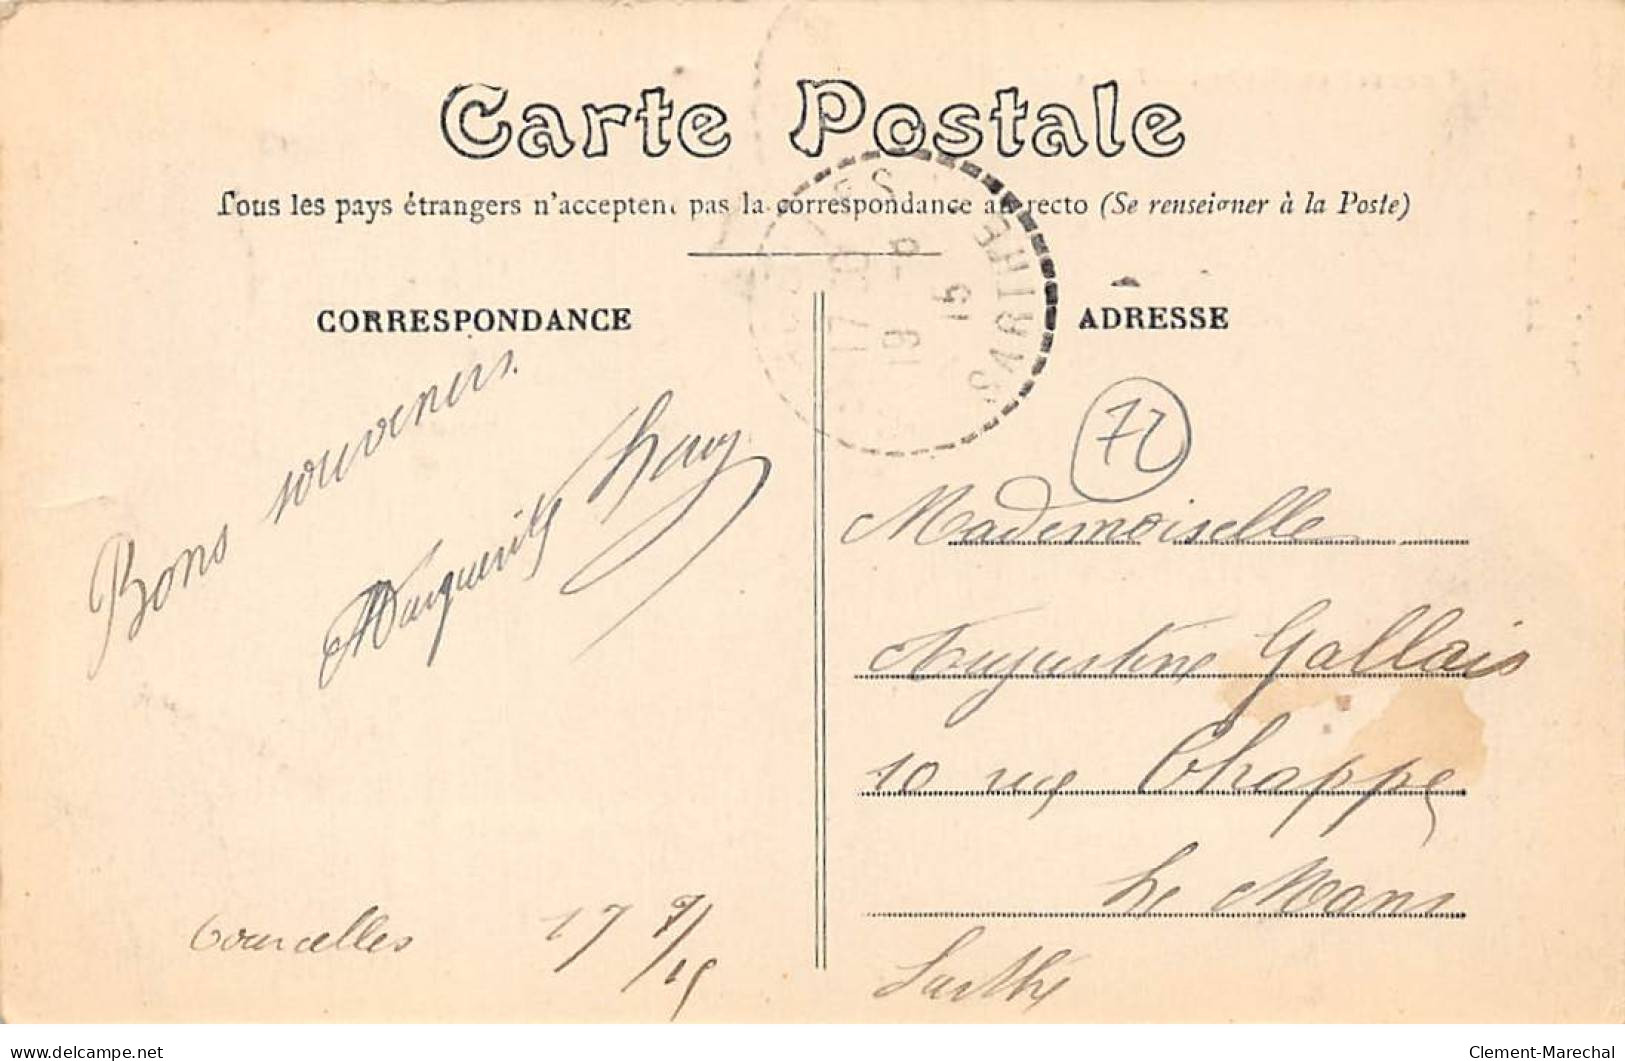 Carte Postale
Tous les pays étrangers n'acceptent pas la correspondance au recto (Se renseigner à la Poste)
CORRESPONDANCE
ADRESSE
SARTHE
17
9
19
15
72
Bons souvenirs.
Marguerite
Mademoiselle
Augustine Gallais
10 rue Chappe
Le Mans
Sarthe
Courcelles 17 9/15
www.delcampe.net
Clement-Marechal